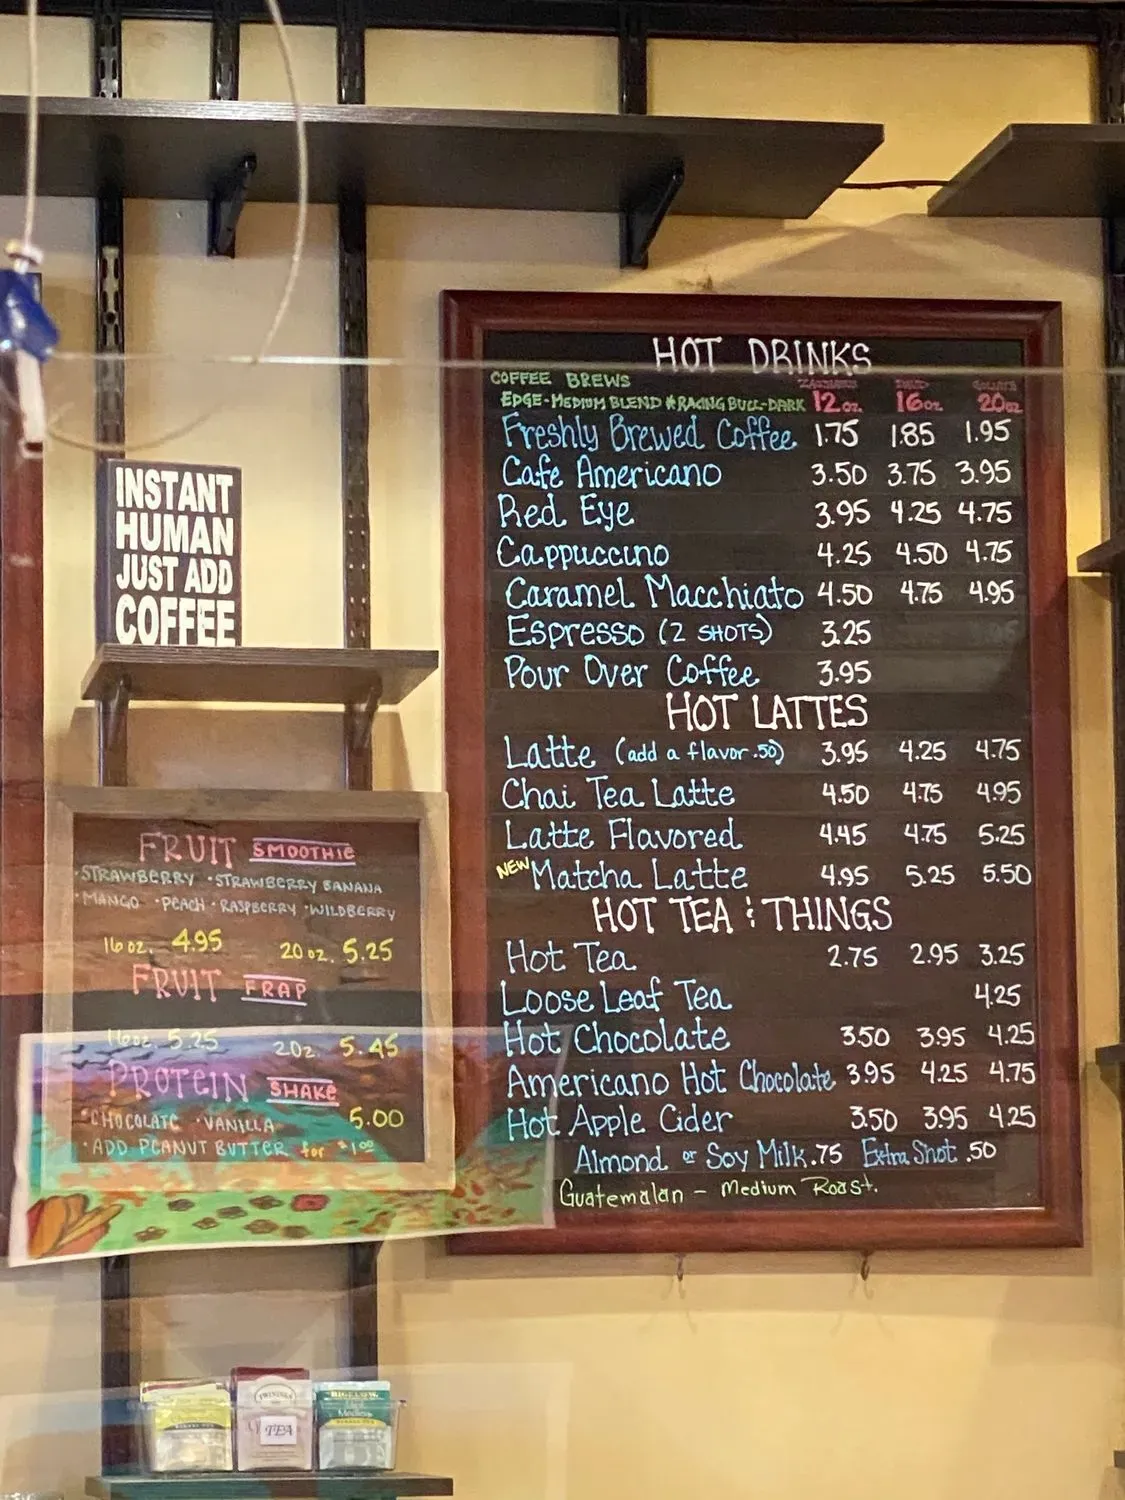 INSTANT
HUMAN
JUST ADD
COFFEE
FRUIT SMOOTHIE
·STRAWBERRY ·STRAWBERRY BANANA
·MANGO ·PEACH ·RASPBERRY ·WILDBERRY
16 oz. 4.95 20 oz. 5.25
FRUIT FRAP
16oz. 5.25 20z. 5.45
PROTEIN SHAKE
·CHOCOLATE ·VANILLA 5.00
·ADD PEANUT BUTTER for $1.00
HOT DRINKS
COFFEE BREWS
DAVID GOLIATH
EDGE-MEDIUM BLEND * RAGING BULL-DARK 12oz. 16oz 20oz
Freshly Brewed Coffee 1.75 1.85 1.95
Cafe Americano 3.50 3.75 3.95
Red Eye 3.95 4.25 4.75
Cappuccino 4.25 4.50 4.75
Caramel Macchiato 4.50 4.75 4.95
Espresso (2 SHOTS) 3.25
Pour Over Coffee 3.95
HOT LATTES
Latte (add a flavor .50) 3.95 4.25 4.75
Chai Tea Latte 4.50 4.75 4.95
Latte Flavored 4.45 4.75 5.25
NEW Matcha Latte 4.95 5.25 5.50
HOT TEA & THINGS
Hot Tea 2.75 2.95 3.25
Loose Leaf Tea 4.25
Hot Chocolate 3.50 3.95 4.25
Americano Hot Chocolate 3.95 4.25 4.75
Hot Apple Cider 3.50 3.95 4.25
Almond or Soy Milk .75 Extra Shot .50
Guatemalan - Medium Roast.
TWININGS
TEA
BIGELOW